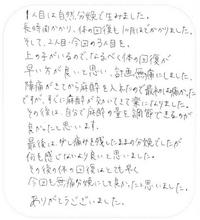 1人目は自然分娩で生みました。
長時間かかり、体の回復も1ヶ月ほどかかりました。
そして、2人目・今回の3人目を、
上の子がいるので、なるべく体の回復が
早い方が良いと思い、計画無痛にしました。
陣痛がきてから麻酔を入れたので最初は痛かった
ですが、すぐに麻酔が効いてきて楽になりました。
その後は、自分で麻酔の量を調節できるのが
良かったと思います。
最後は、少し痛みを残したままの分娩でしたが
何も感じないより良いと思いました。
その後の体の回復はとても早く
今回も無痛分娩にして良かったと思いました。
ありがとうございました。